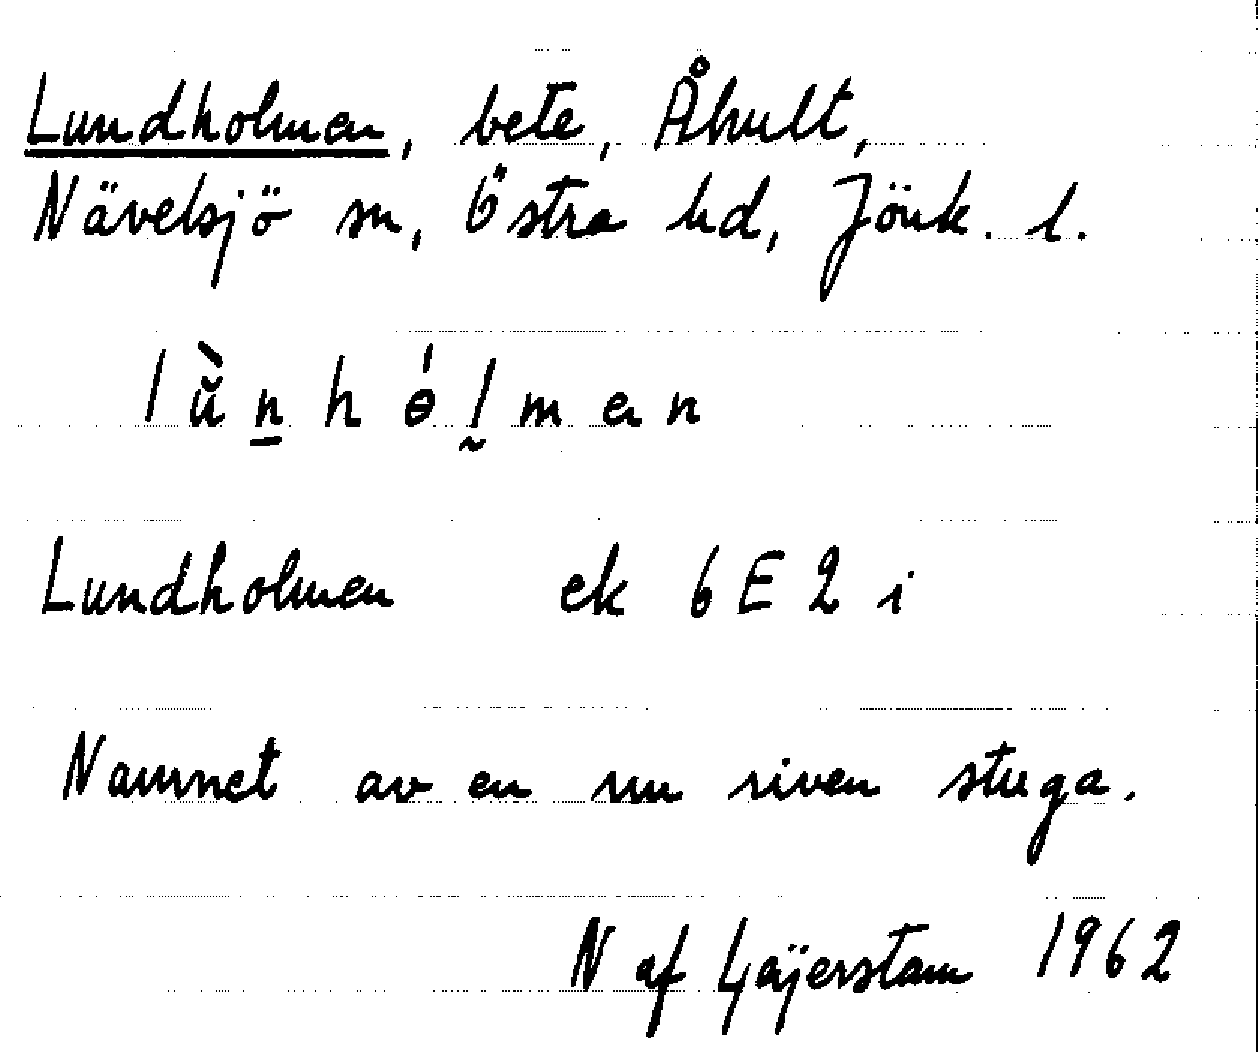 Lundholmen, bete, Åhult,
Nävelsjö sn, Östra hd, Jönk. l.
lŭ̀n̲hɵ́l̰mən
Lundholmen ek 6E2i
Namnet av en nu riven stuga.
N af Gejerstam 1962